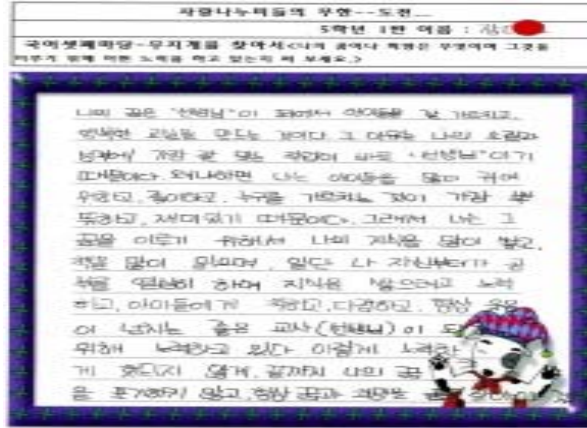 사랑나누미들의 무한--도전
5학년 1반 이름 :
국어셋째마당-무지개를 찾아서<나의 꿈이나 희망은 무엇이며 그것을
이루기 위해 어떤 노력을 하고 있는지 써 보세요.>
나의 꿈은 "선생님"이 되어서 아이들을 잘 가르치고,
행복한 교실을 만드는 것이다. 그 이유는 나의 소질과
성격에 가장 잘 맞는 직업이 바로 "선생님"이기
때문이다. 왜냐하면 나는 아이들을 많이 귀여
워하고, 좋아하고, 누구를 가르치는 것이 가장 뿌
듯하고, 재미있기 때문이다. 그래서 나는 그
꿈을 이루기 위해서 나의 지식을 많이 쌓고,
책을 많이 읽으며, 일단 나 자신부터가 공
부를 열심히 하여 지식을 쌓으려고 노력
하고, 아이들에게 착하고, 다정하고, 항상 웃음
이 넘치는 좋은 교사(선생님)이 되
위해 노력하고 있다 이렇게 노력한
게 헛되지 않게, 끝까지 나의 꿈
을 포기하지 않고, 항상 꿈과 희망을